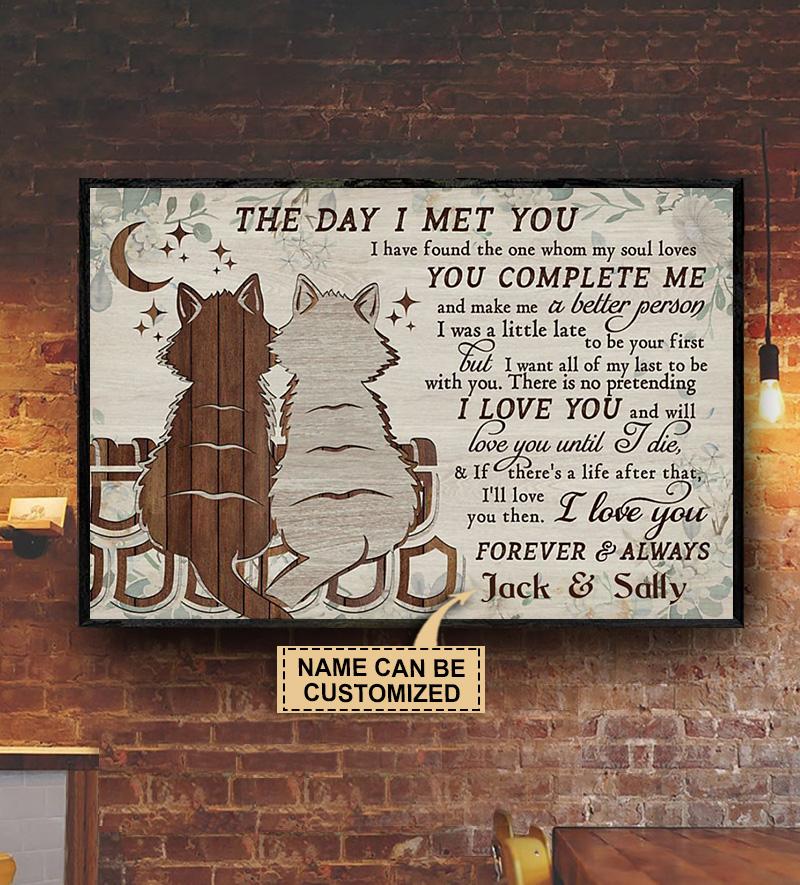 THE DAY I MET YOU
I have found the one whom my soul loves
YOU COMPLETE ME
and make me a better person
I was a little late to be your first
but I want all of my last to be
with you. There is no pretending
I LOVE YOU and will
love you until I die,
& If there's a life after that,
I'll love
you then. I love you
FOREVER & ALWAYS
Jack & Sally
NAME CAN BE
CUSTOMIZED